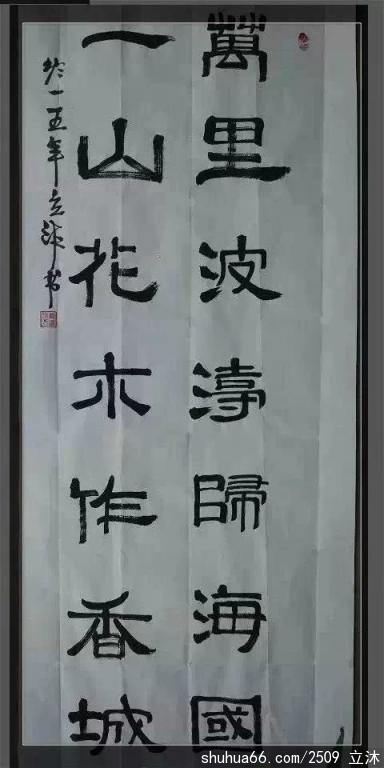 萬里波濤歸海國
一山花木作香城
於一五年立沐书
shuhua66.com/2509 立沐